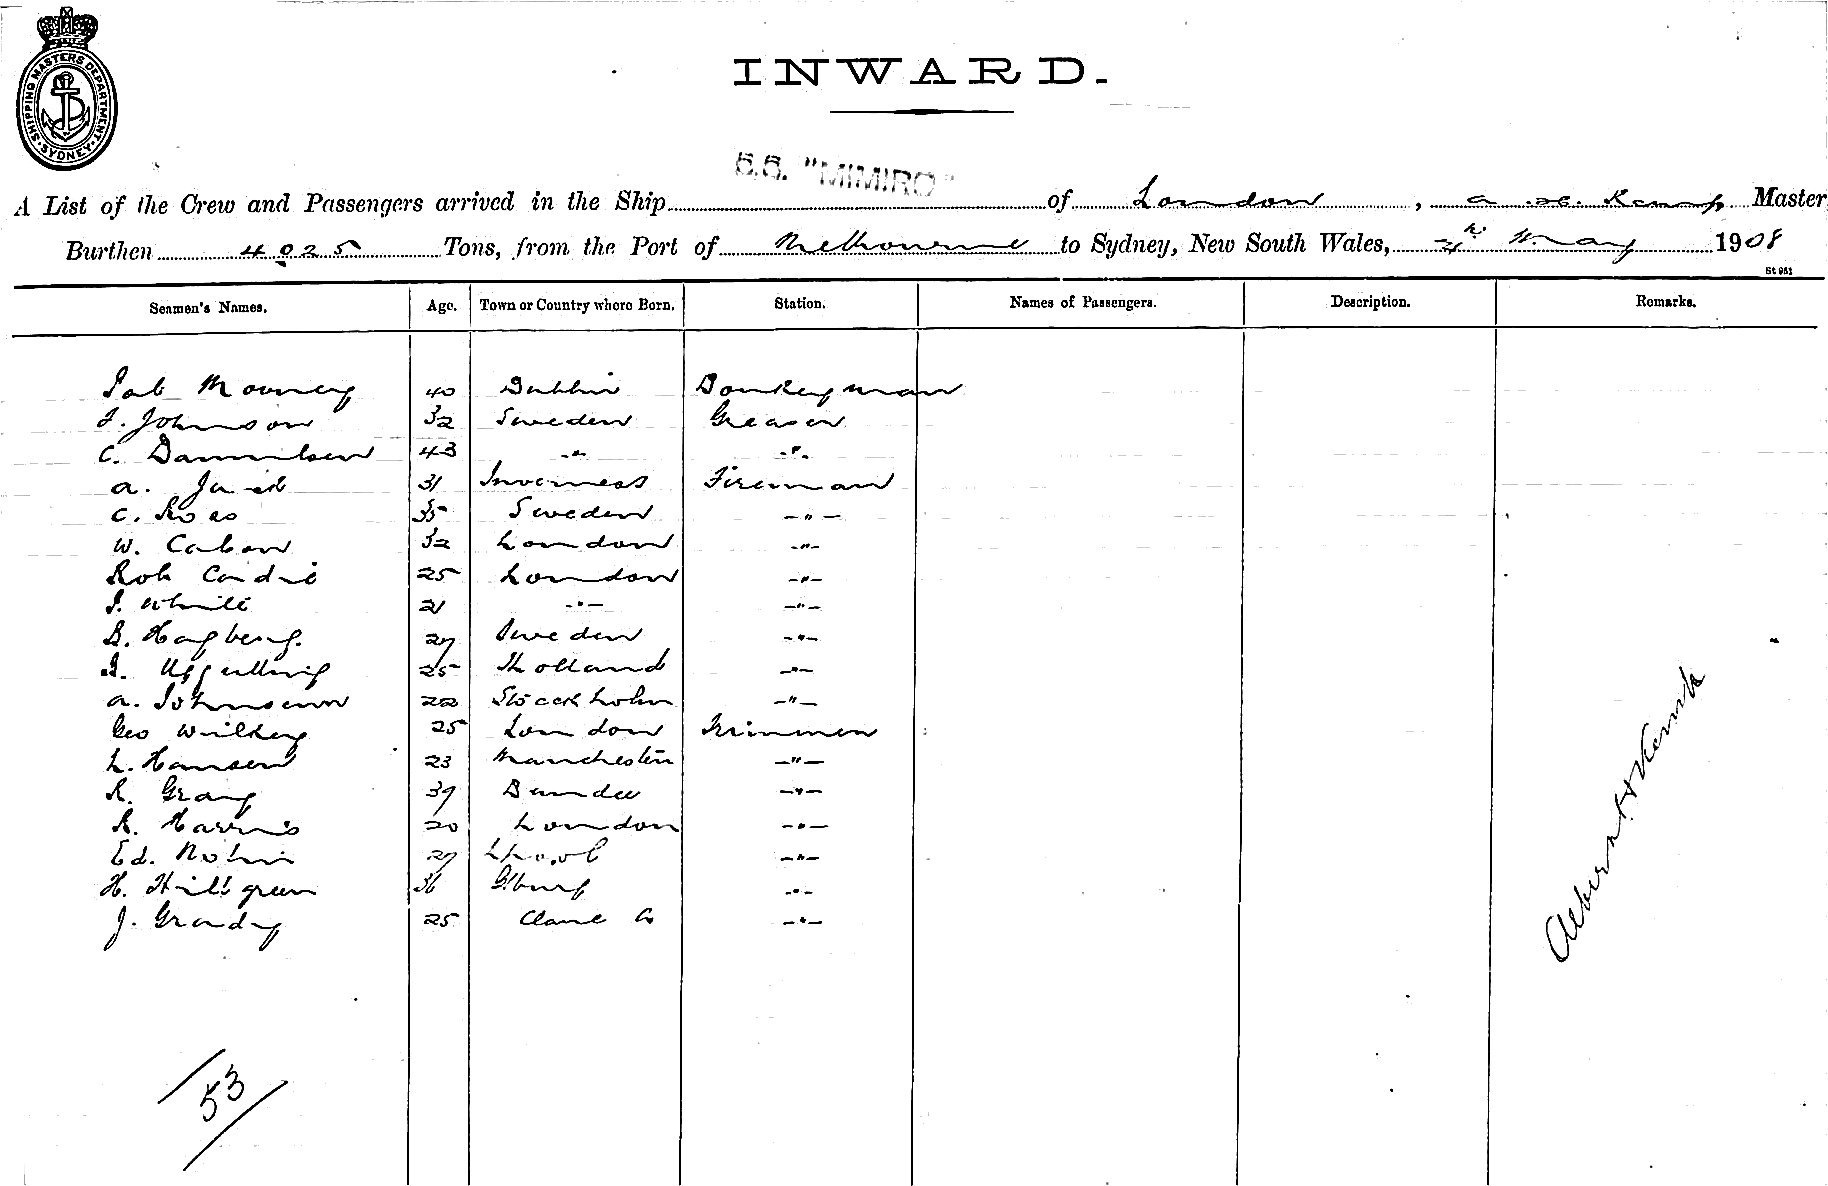 SHIPPING MASTERS DEPARTMENT. SYDNEY.
INWARD.
S.S. "MIMIRO"
A List of the Crew and Passengers arrived in the Ship of London, A. H. Master
Burthen 4925 Tons, from the Port of Melbourne to Sydney, New South Wales, May 1908
St 951
Seamen's Names. Age. Town or Country where Born. Station. Names of Passengers. Description. Remarks.
Pat Mooney 40 Dublin Donkeyman
J. Johnson 32 Sweden Greaser
C. Danielsen 43 -"- -"-
A. 31 Inverness Fireman
C. Ross 35 Sweden -"-
W. 32 London -"-
Rob 25 London -"-
J. White 21 -"- -"-
B. Hagberg. 27 Sweden -"-
25 Holland -"-
A. Johnson 22 Stockholm -"-
Geo 25 London Trimmer
L. Hansen 23 Manchester -"-
R. Gray 39 Dundee -"-
R. Harris 20 London -"-
Ed. 27 L'pool -"-
H. Hillgreen 36 G'burg -"-
J. Grandy 25 Clare Co -"-
Albert H
53